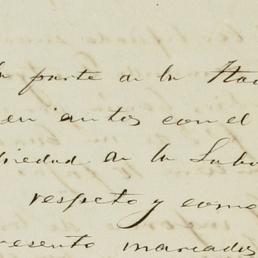 parte de la Hac
en autos con el
piedad de la Sub
respeto y como
resento marcados